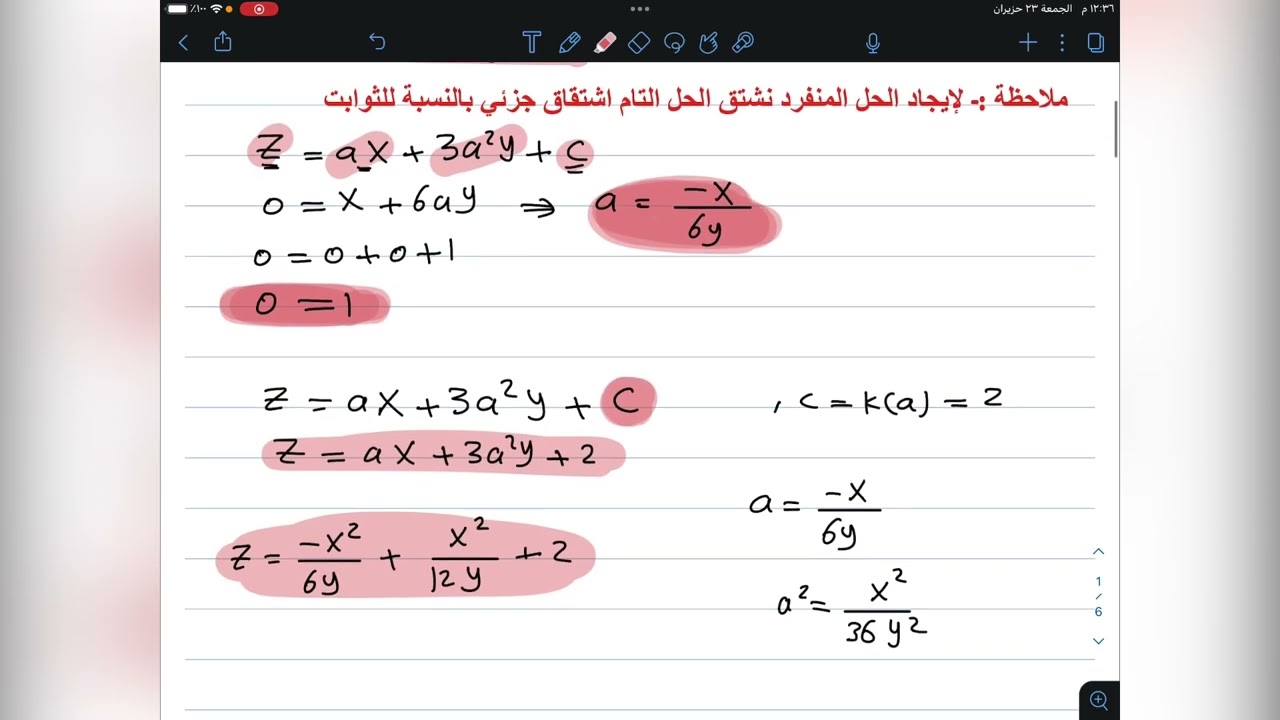 ١٢:٣٦ م الجمعة ٢٣ حزيران
٪١٠٠
ملاحظة :- لإيجاد الحل المنفرد نشتق الحل التام اشتقاق جزئي بالنسبة للثوابت
Z = ax + 3a²y + c
0 = x + 6ay ⇒ a = -x/6y
0 = 0 + 0 + 1
0 = 1
Z = ax + 3a²y + C , c = k(a) = 2
Z = ax + 3a²y + 2
a = -x/6y
Z = -x²/6y + x²/12y + 2
a² = x²/36y²
1/6